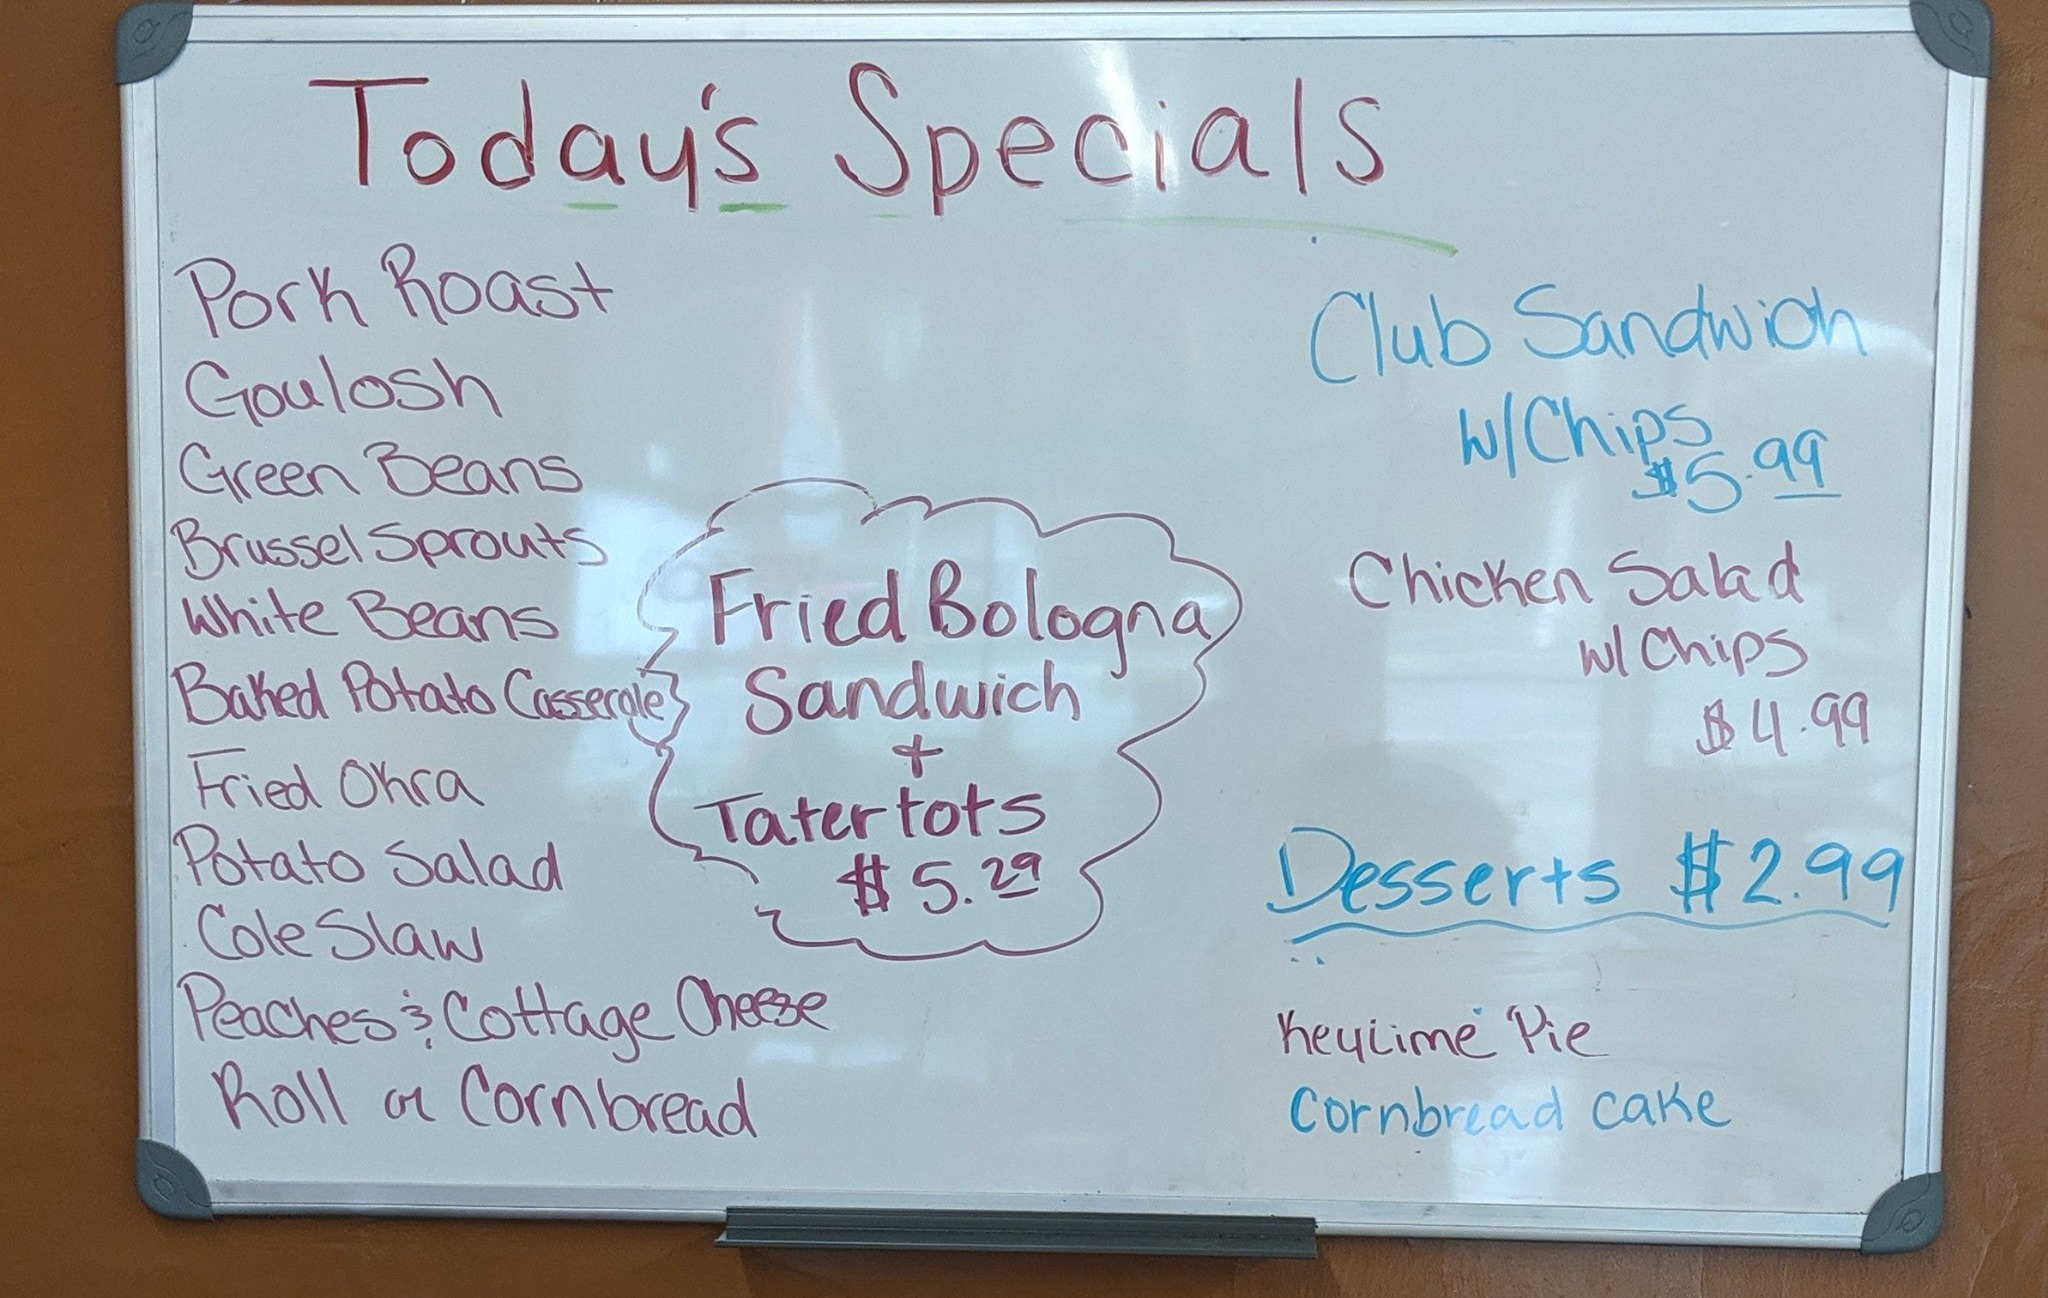 Today's Specials
Pork Roast
Goulosh
Green Beans
Brussel Sprouts
White Beans
Baked Potato Casserole
Fried Okra
Potato Salad
Cole Slaw
Peaches & Cottage Cheese
Roll or Cornbread
Fried Bologna
Sandwich
+
Tatertots
$5.29
Club Sandwich
w/Chips
$5.99
Chicken Salad
w/ Chips
$4.99
Desserts $2.99
KeyLime Pie
Cornbread cake